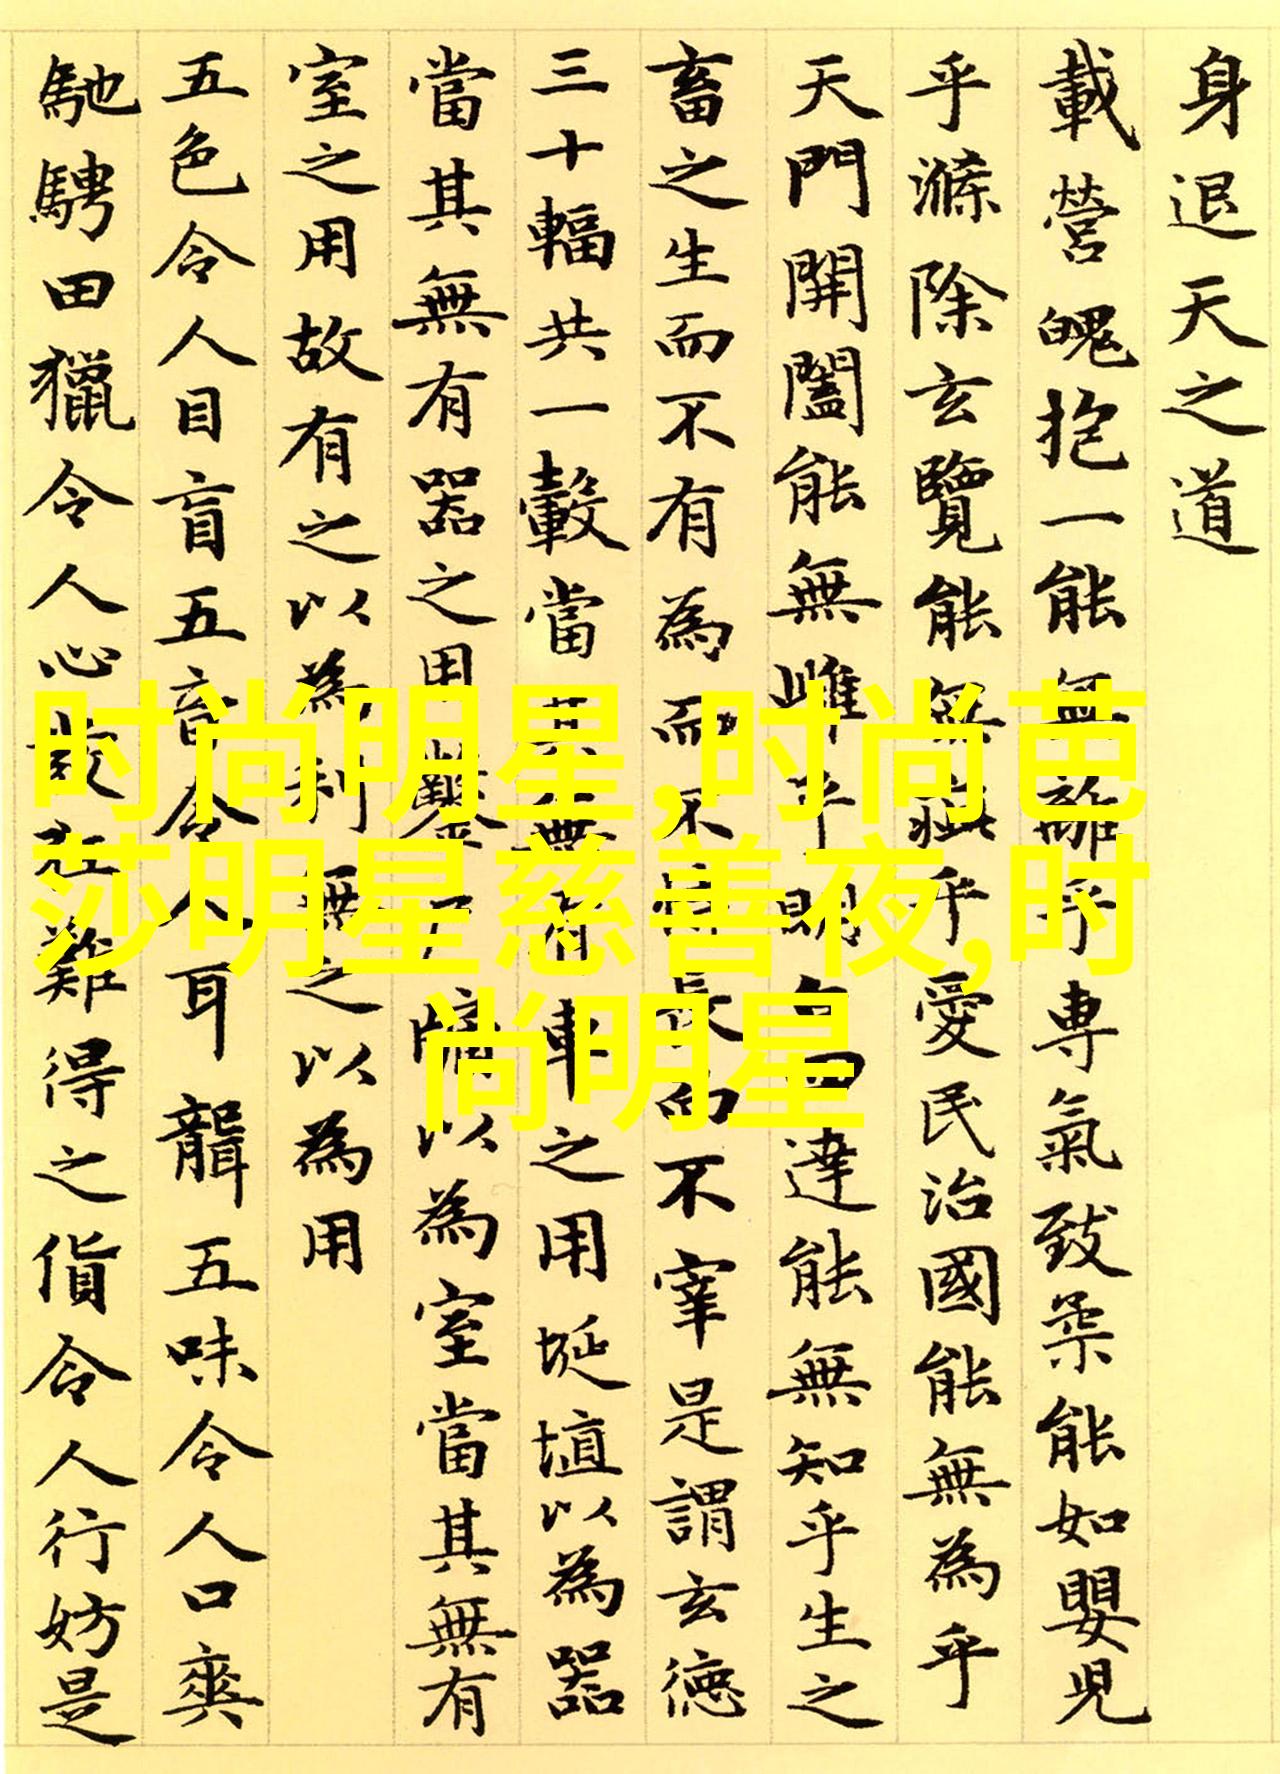 身退天之道
載營魄抱一能無離乎專氣致柔能如嬰兒
乎滌除玄覽能無疵乎愛民治國能無為乎
天門開闔能無雌乎明白四達能無知乎生之
畜之生而不有為而不恃長而不宰是謂玄德
三十輻共一轂當其無有車之用埏埴以為器
當其無有器之用鑿戶牖以為室當其無有
室之用故有之以為利無之以為用
五色令人目盲五音令人耳聾五味令人口爽
馳騁田獵令人心發狂難得之貨令人行妨是
时尚明星,时尚芭
莎明星慈善夜,时
尚明星